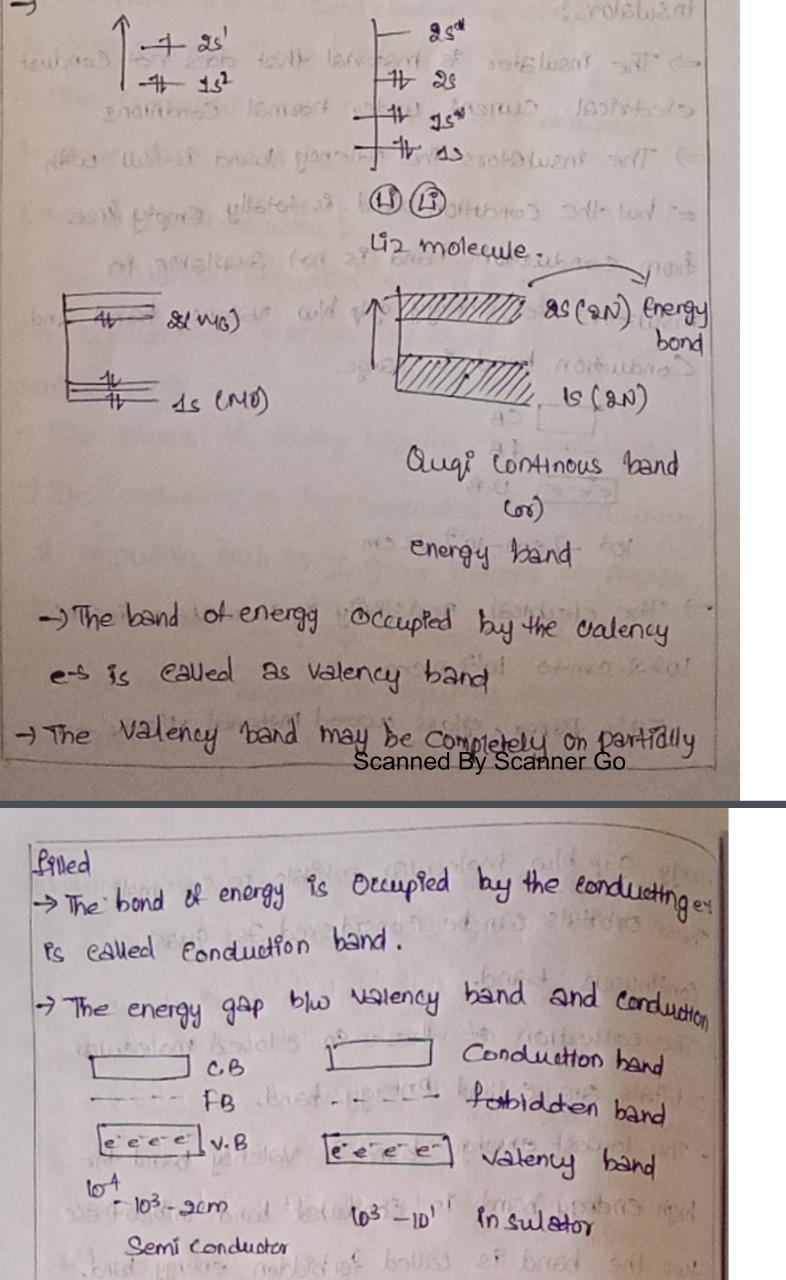 2s¹
1s²
2s*
2s
1s*
1s
Li Li
Li2 molecule.
2s(MO)
1s (MO)
2s (2N) Energy
bond
1s (2N)
Quqi continous band
(or)
energy band
→ The band of energy occupied by the valency
e-s is called as valency band
→ The valency band may be completely on partially
Scanned By Scanner Go
filled
→ The bond of energy is occupied by the conducting es
is called conduction band.
→ The energy gap b/w valency band and conduction
C.B
Conduction band
FB
forbidden band
e⁻ e⁻ e⁻ e⁻ V.B
e⁻ e⁻ e⁻ e⁻ valency band
10⁴ - 10³ - 2cm
10³ - 10¹¹ insulator
Semi conductor